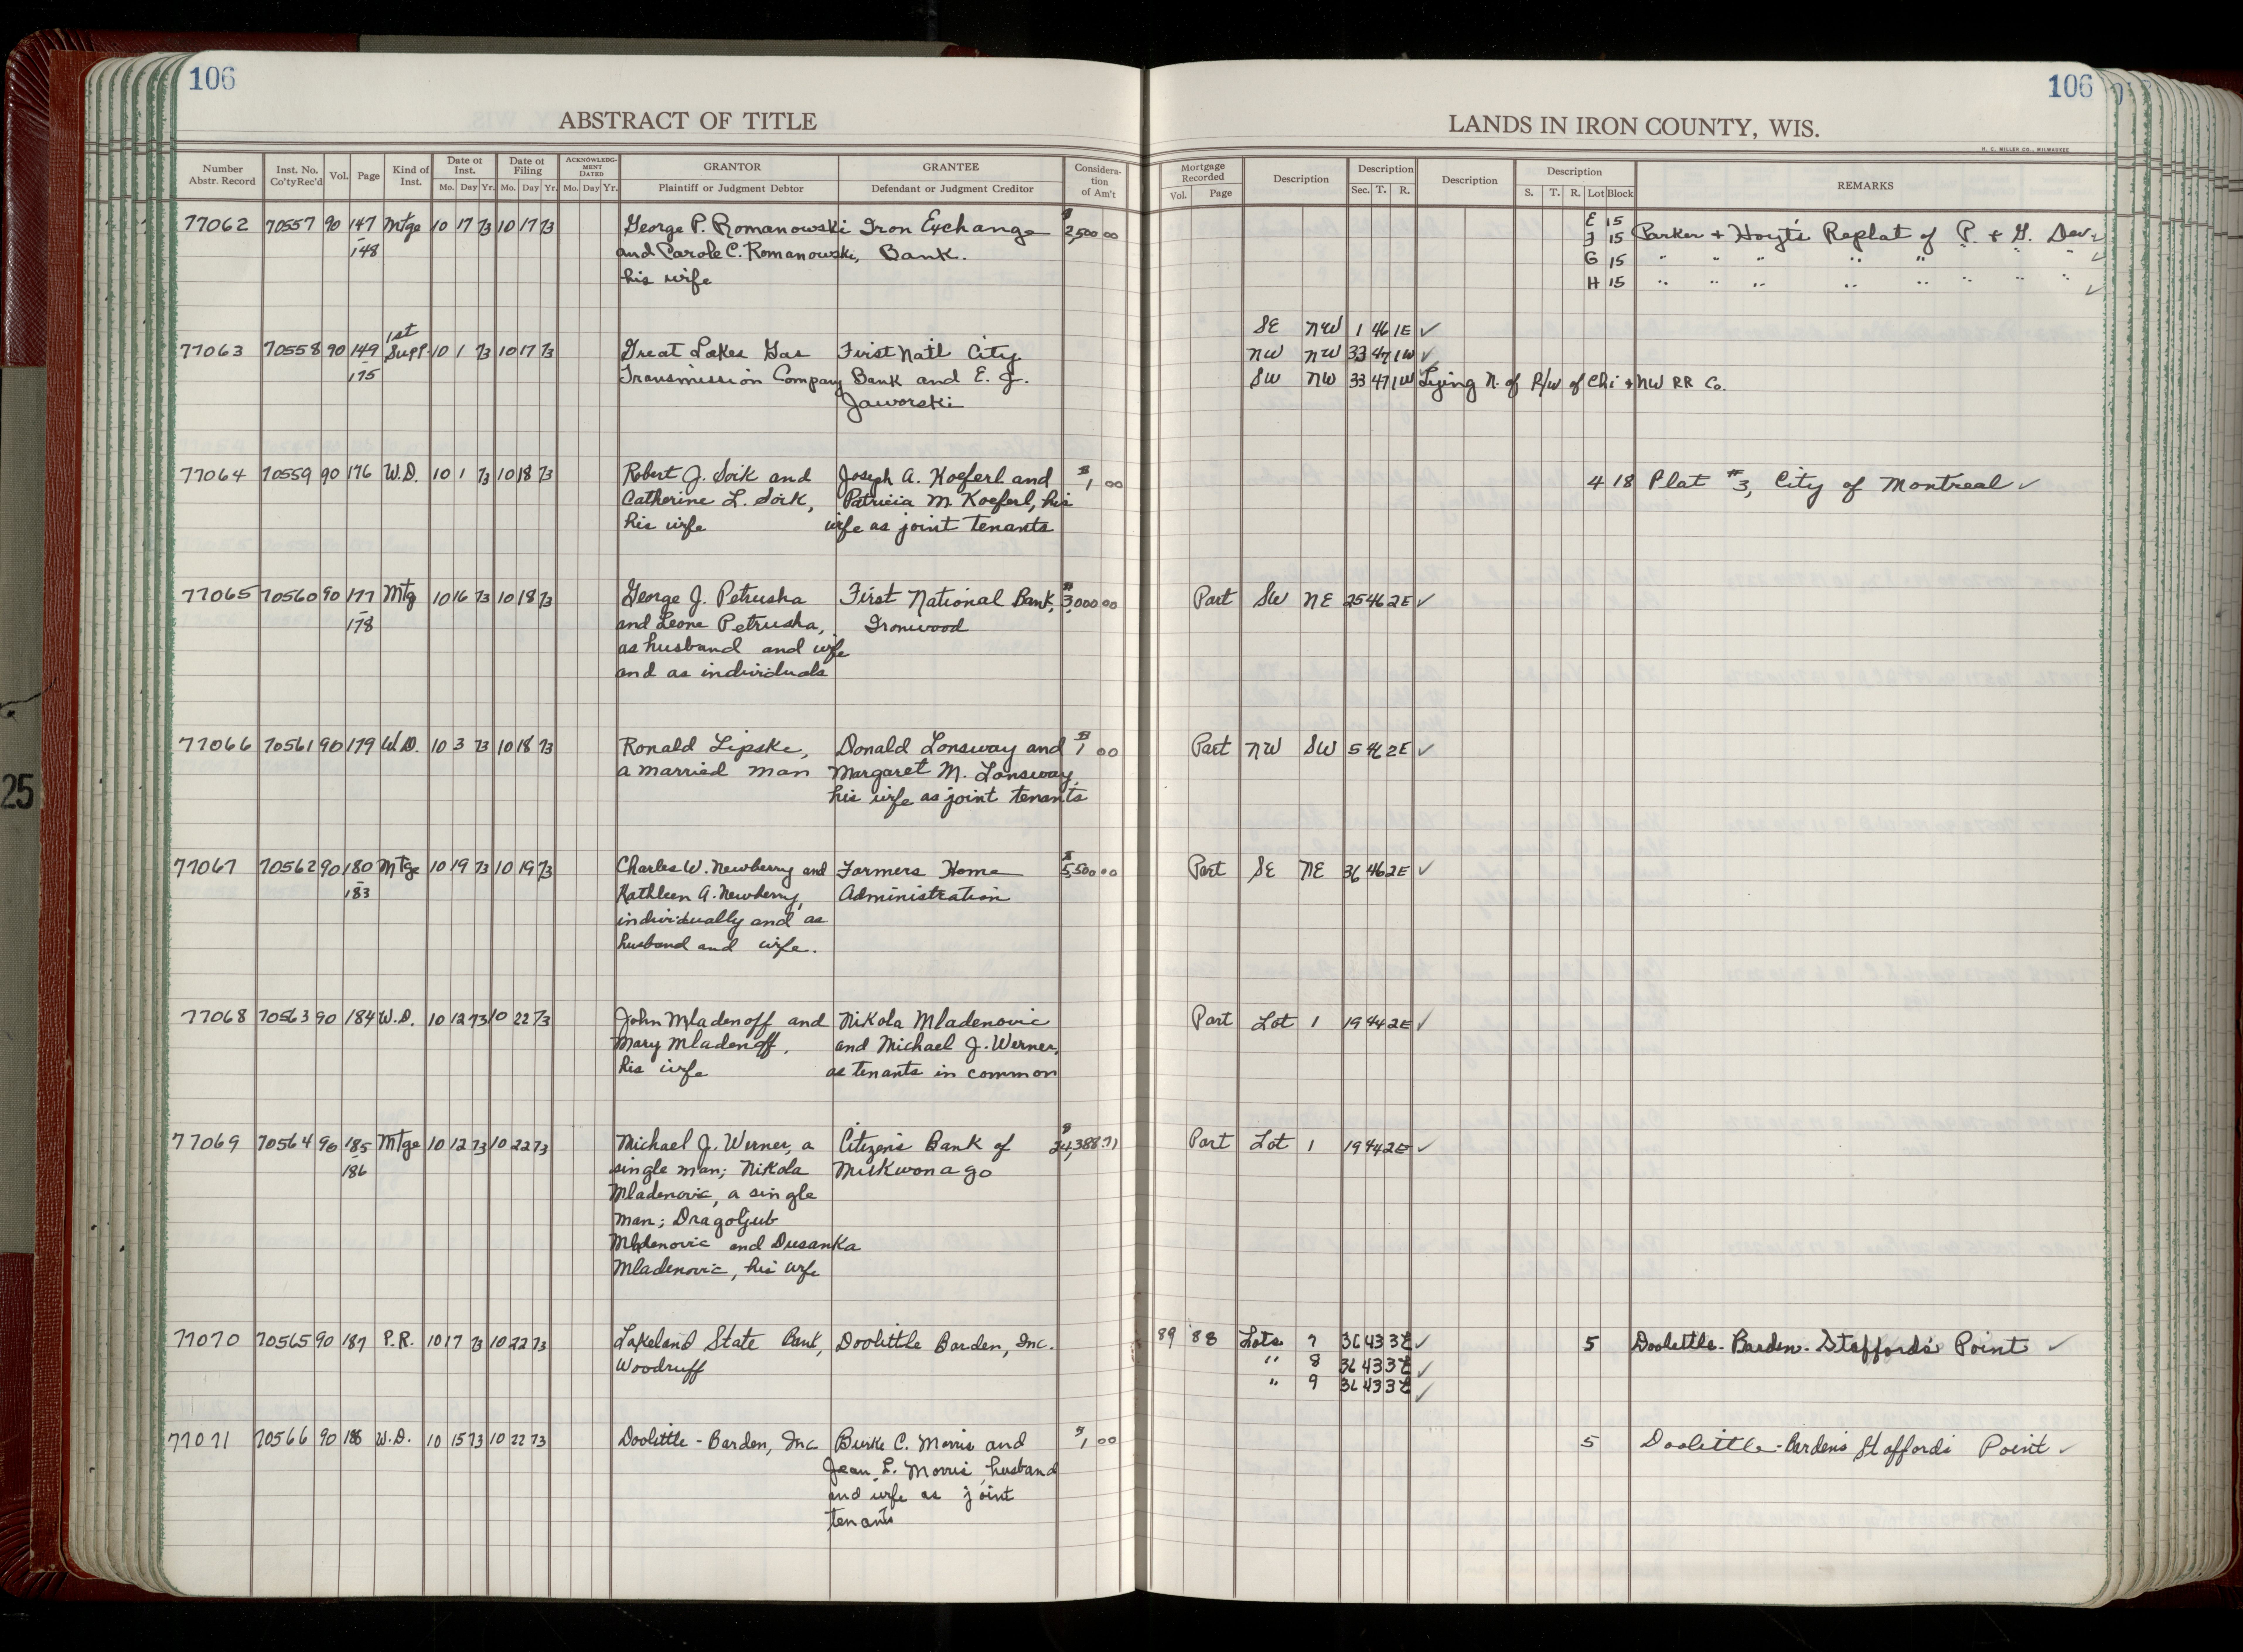 106
106
ABSTRACT OF TITLE
LANDS IN IRON COUNTY, WIS.
H. C. MILLER CO., MILWAUKEE
Number Abstr. Record Inst. No. Co'ty Rec'd Vol. Page Kind of Inst. Date of Inst. Mo. Day Yr. Date of Filing Mo. Day Yr. ACKNOWLEDGMENT DATED Mo. Day Yr. GRANTOR Plaintiff or Judgment Debtor GRANTEE Defendant or Judgment Creditor Consideration of Am't Mortgage Recorded Vol. Page Description Description Sec. T. R. Description Description S. T. R. Lot Block REMARKS
77062 70557 90 147 Mtge 10 17 73 10 17 73 George P. Romanowski Iron Exchange $2,500 00 E 15
- 148 and Carole C. Romanowski, Bank. 15 Parker + Hoyt's Replat of P. + G. Dev. ✓
his wife G 15 " " " " " " " " ✓
H 15 " " " " " " " " ✓
SE NW 1 46 1E ✓
77063 70558 90 149 1st Suppl. 10 1 73 10 17 73 Great Lakes Gas First Nat'l City NW NW 33 47 1W ✓
- 175 Transmission Company Bank and E. J. SW NW 33 47 1W Lying N. of R/W of Chi + NW RR Co.
Jaworski
77064 70559 90 176 W.D. 10 1 73 10 18 73 Robert J. Soik and Joseph A. Koeferl and $1 00 4 18 Plat #3, City of Montreal ✓
Catherine L. Soik, Patricia M. Koeferl, his
his wife wife as joint tenants
77065 70560 90 177 Mtg 10 16 73 10 18 73 George J. Petrusha First National Bank, $3,000 00 Part SW NE 25 46 2E ✓
- 178 and Leone Petrusha, Ironwood
as husband and wife
and as individuals
77066 70561 90 179 W.D. 10 3 73 10 18 73 Ronald Lipske, Donald Lonsway and $1 00 Part NW SW 5 46 2E ✓
a married man Margaret M. Lonsway,
his wife as joint tenants
77067 70562 90 180 Mtge 10 19 73 10 19 73 Charles W. Newberry and Farmers Home $5,500 00 Part SE NE 36 46 2E ✓
- 183 Kathleen A. Newberry, Administration
individually and as
husband and wife.
77068 70563 90 184 W.D. 10 12 73 10 22 73 John Mladenoff and Nikola Mladenovic Part Lot 1 19 44 2E ✓
Mary Mladenoff, and Michael J. Werner,
his wife as tenants in common
77069 70564 90 185 Mtge 10 12 73 10 22 73 Michael J. Werner, a Citizens Bank of $24,388.71 Part Lot 1 19 44 2E ✓
- 186 single man; Nikola Mukwonago
Mladenovic, a single
man; Dragoljub
Mladenovic and Dusanka
Mladenovic, his wife
77070 70565 90 187 P.R. 10 17 73 10 22 73 Lakeland State Bank, Doolittle Barden, Inc. 89 88 Lots 7 36 43 3E ✓ 5 Doolittle-Barden-Stafford's Point ✓
Woodruff " 8 36 43 3E ✓
" 9 36 43 3E ✓
77071 70566 90 188 W.D. 10 15 73 10 22 73 Doolittle-Barden, Inc Burke C. Morris and $1 00 5 Doolittle-Barden's Stafford's Point ✓
Jean L. Morris, husband
and wife as joint
tenants
25